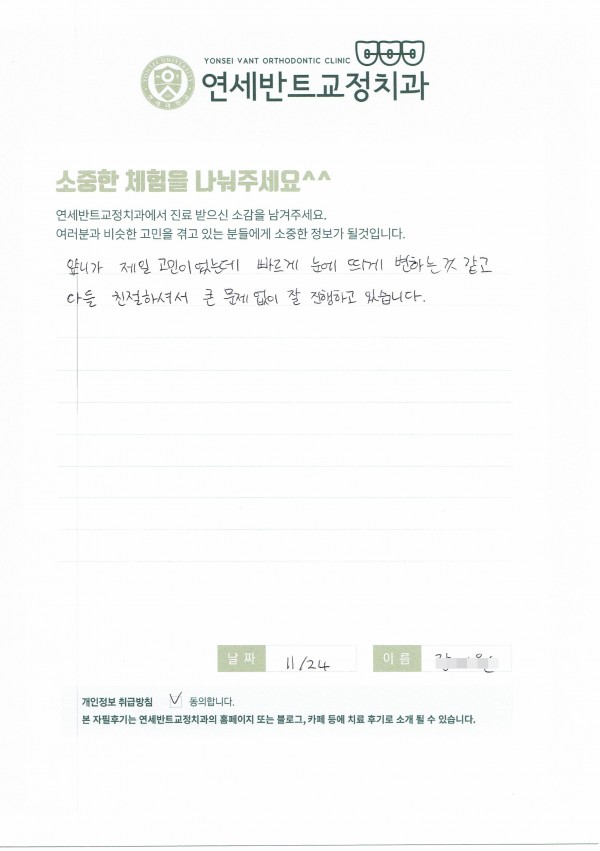 YONSEI VANT ORTHODONTIC CLINIC
연세반트교정치과
소중한 체험을 나눠주세요^^
연세반트교정치과에서 진료 받으신 소감을 남겨주세요.
여러분과 비슷한 고민을 겪고 있는 분들에게 소중한 정보가 될것입니다.
앞니가 제일 고민이었는데 빠르게 눈에 띄게 변하는 것 같고
다들 친절하셔서 큰 문제 없이 잘 진행하고 있습니다.
날 짜 11/24 이 름
개인정보 취급방침 동의합니다.
본 자필후기는 연세반트교정치과의 홈페이지 또는 블로그, 카페 등에 치료 후기로 소개 될 수 있습니다.